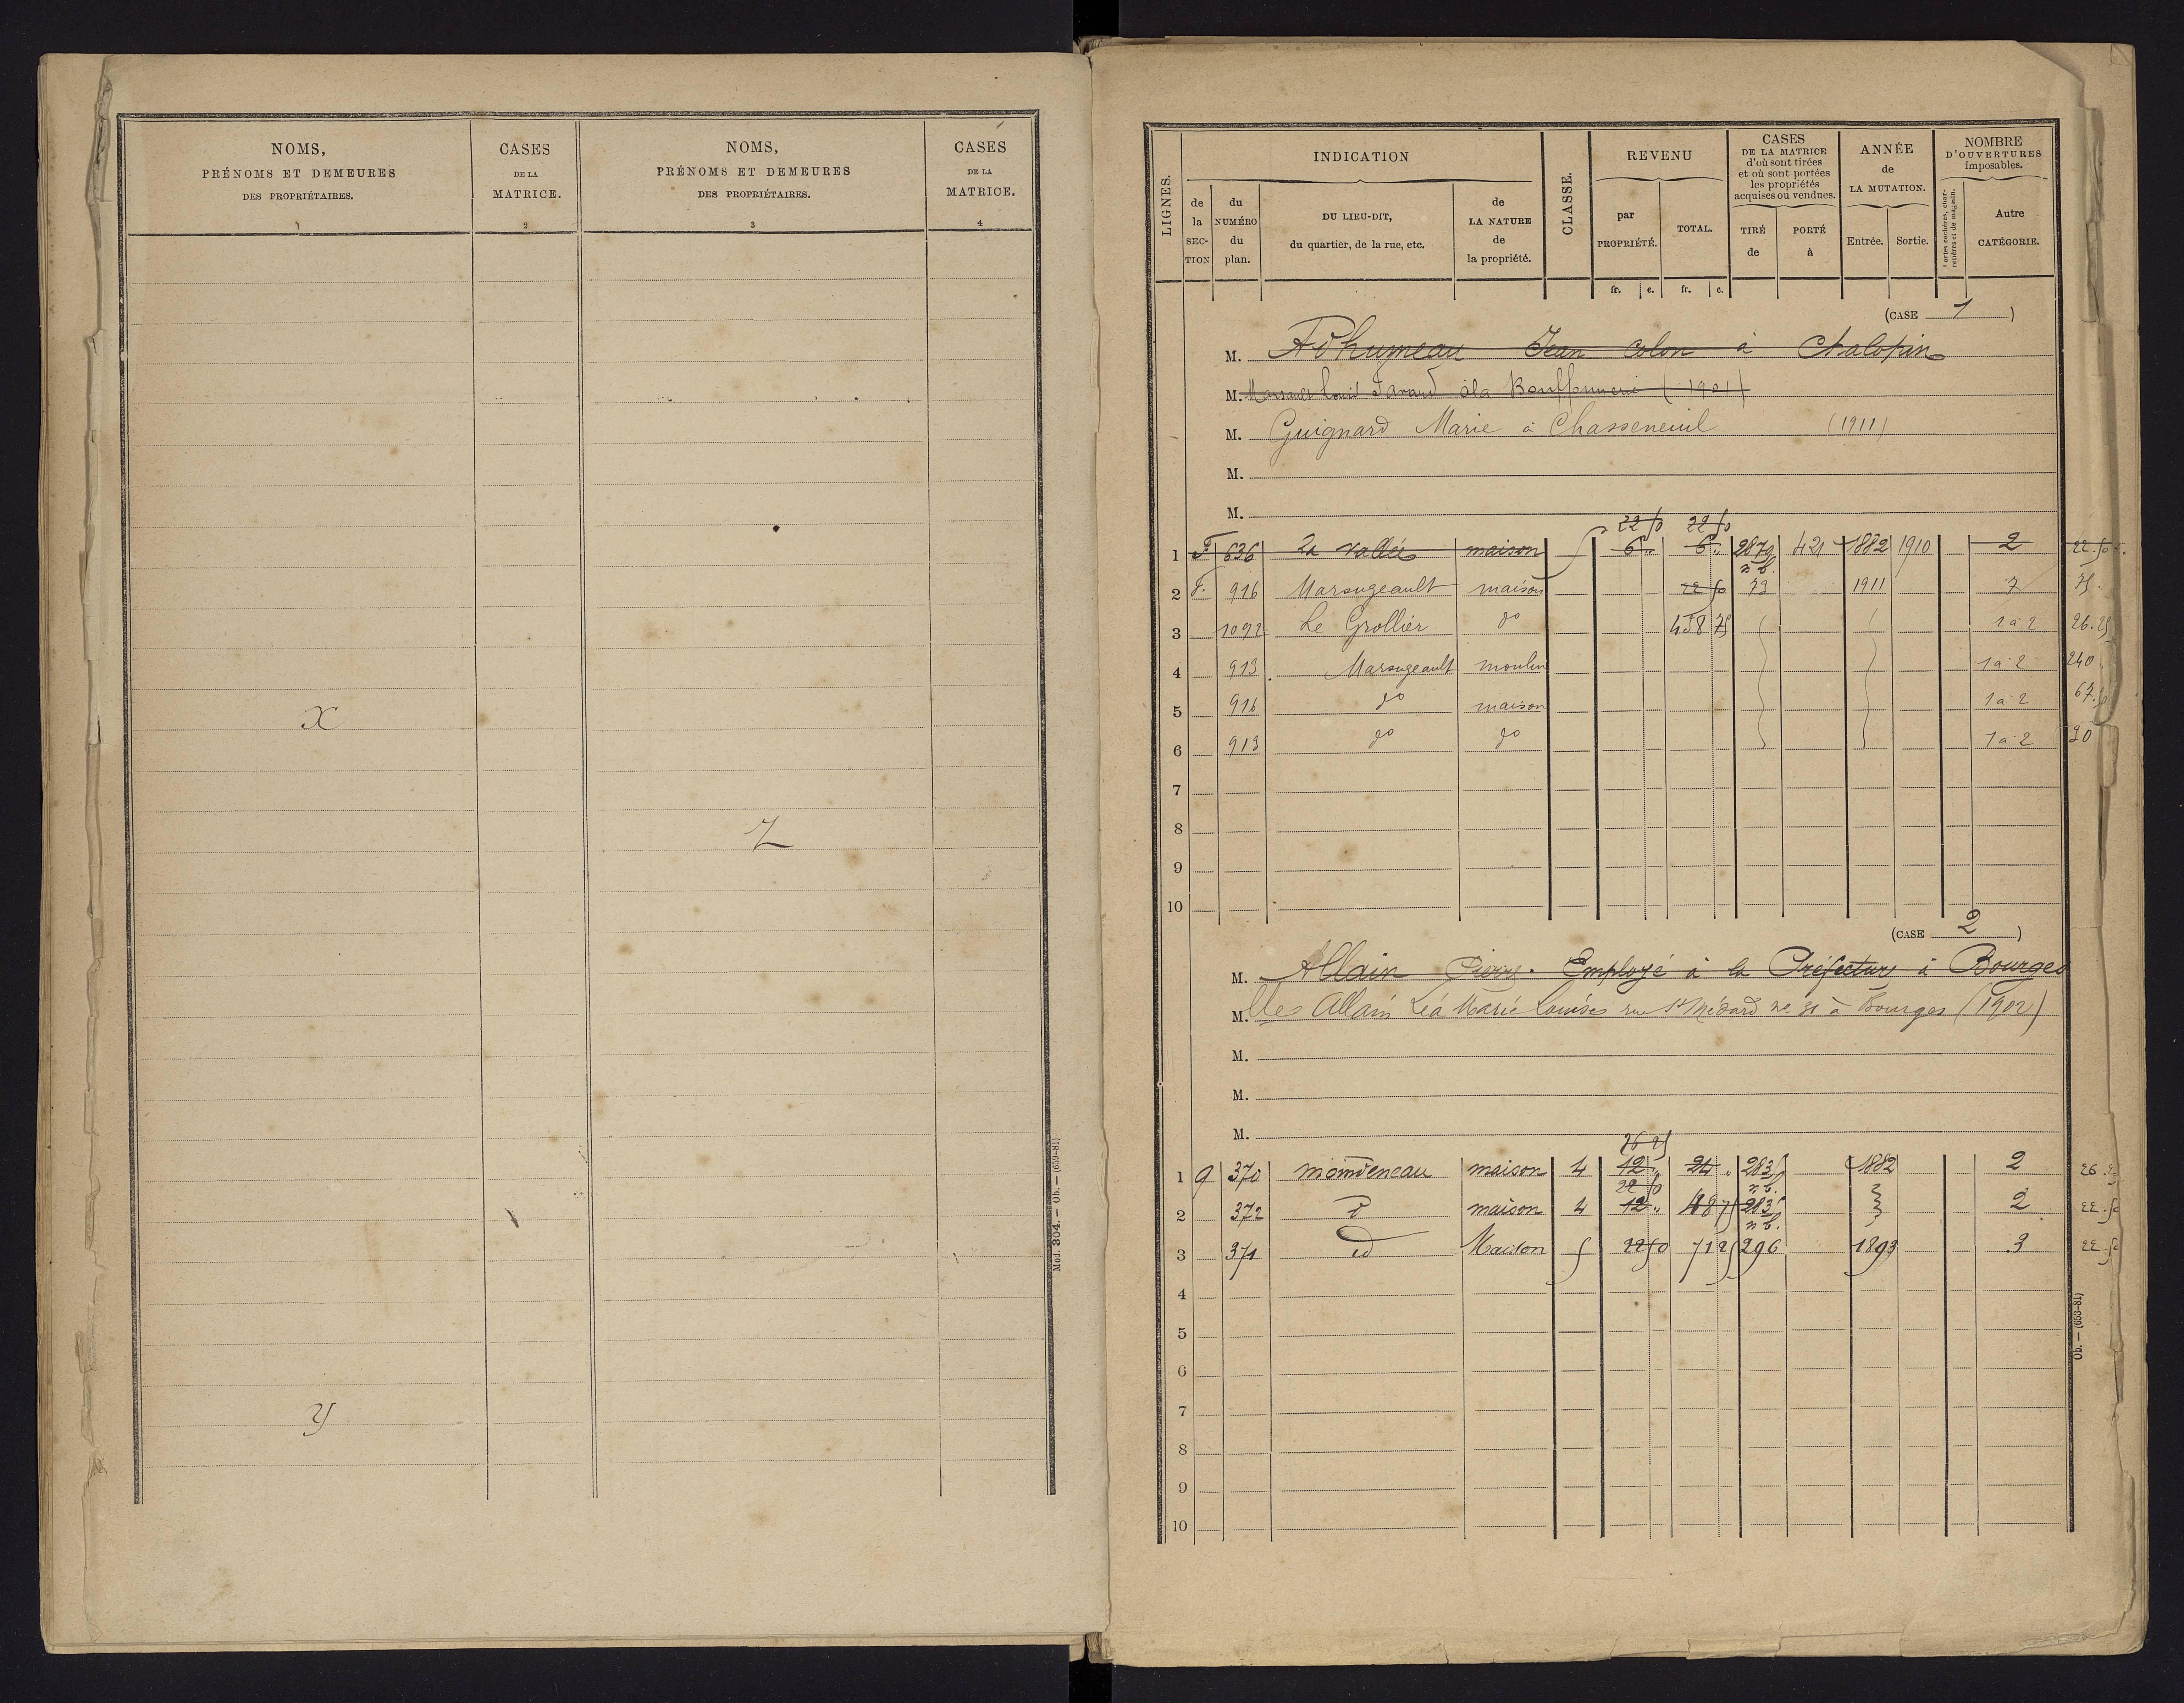 NOMS, PRÉNOMS ET DEMEURES DES PROPRIÉTAIRES. 1
CASES DE LA MATRICE. 2
NOMS, PRÉNOMS ET DEMEURES DES PROPRIÉTAIRES. 3
CASES DE LA MATRICE. 4
X
Z
Y
Mod. 304. — Ob. — (659-81)
LIGNES.
INDICATION
de la SECTION
du NUMÉRO du plan.
DU LIEU-DIT, du quartier, de la rue, etc.
de LA NATURE de la propriété.
CLASSE.
REVENU
par PROPRIÉTÉ.
TOTAL.
CASES DE LA MATRICE d'où sont tirées et où sont portées les propriétés acquises ou vendues.
TIRÉ de
PORTÉ à
ANNÉE de LA MUTATION.
Entrée.
Sortie.
NOMBRE D'OUVERTURES imposables.
Portes cochères, charretières et de magasin.
Autre CATÉGORIE.
fr. c. fr. c.
(CASE 1)
M. Adhumeau Jean colon à Chalopin
M. Louis à la (1901)
M. Guignard Marie à Chasseneuil (1911)
M.
M.
22 50 22 50
1 F 636 La vallée maison 5 6 " 6 " 2879 421 1882 1910 2 22.50
n b.
2 F. 916 Marsugeault maison 22 50 79 1911 7 75.
3 1092 Le Grollier do 458 75 1 à 2 26.25
4 913 Marsugeault moulin 1 à 2 240
5 916 do maison 1 à 2 67.50
6 913 do do 1 à 2 30
7
8
9
10
(CASE 2)
M. Allain Pierre. Employé à la Préfecture à Bourges
M. lles Allain Léa Marie Louise rue St Médard no 31 à Bourges (1902)
M.
M.
M.
26 25
1 G 370 maison 4 12 " 24 " 2835 1882 2 26.25
22 50 n b.
2 372 d maison 4 12 " 4875 2835 2 22.50
n b.
3 371 id Maison 5 22 50 7125 296 1893 3 22.50
4
5
6
7
8
9
10
Ob. — (653-81)